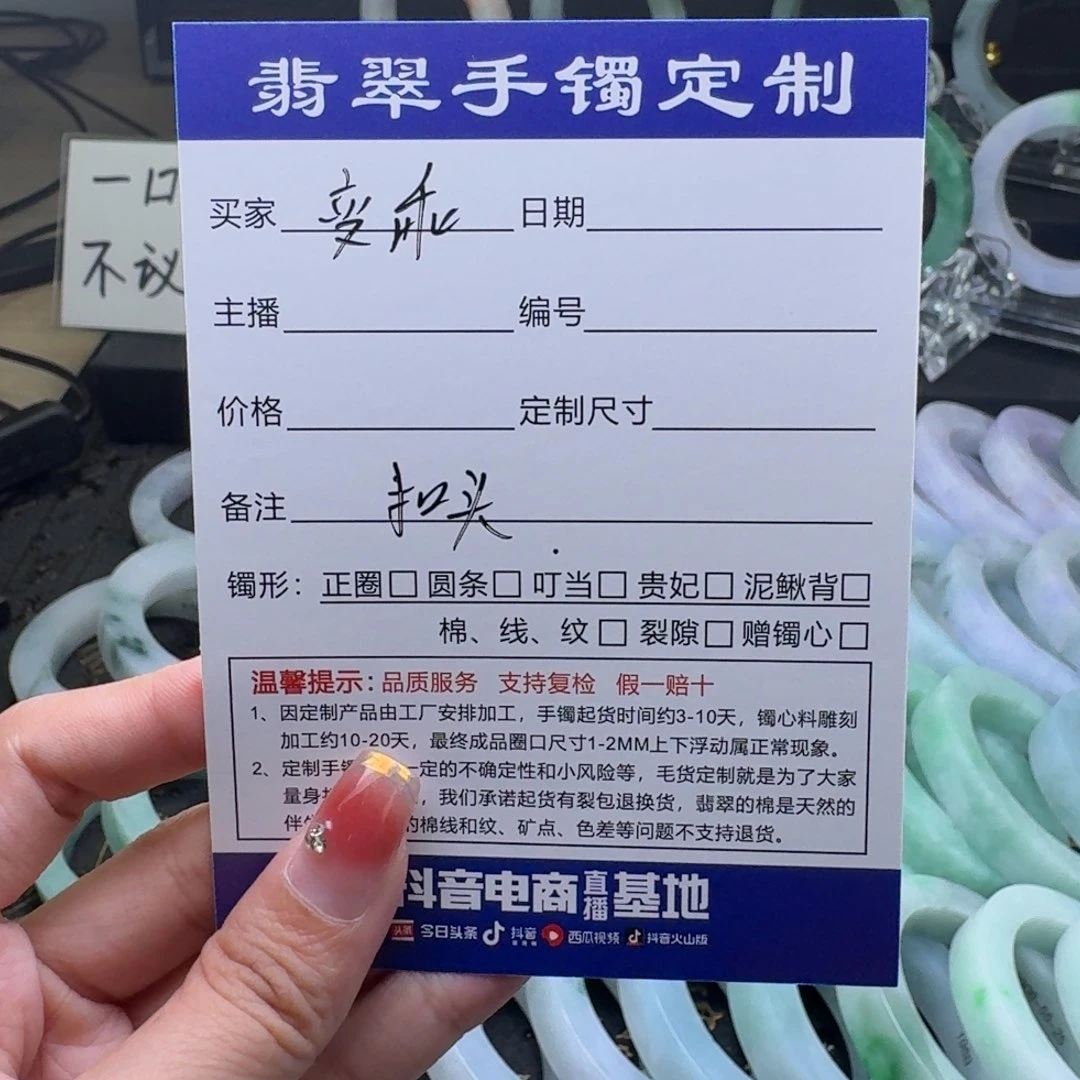 翡翠手镯定制
一口
不议
买家 变乖 日期
主播 编号
价格 定制尺寸
备注 扣头
镯形：正圈□ 圆条□ 叮当□ 贵妃□ 泥鳅背□
棉、线、纹□ 裂隙□ 赠镯心□
温馨提示：品质服务 支持复检 假一赔十
1、因定制产品由工厂安排加工，手镯起货时间约3-10天，镯心料雕刻
加工约10-20天，最终成品圈口尺寸1-2MM上下浮动属正常现象。
2、定制手 一定的不确定性和小风险等，毛货定制就是为了大家
量身 ，我们承诺起货有裂包退换货，翡翠的棉是天然的
伴 的棉线和纹、矿点、色差等问题不支持退货。
抖音电商直播基地
头条 今日头条 抖音 西瓜视频 抖音火山版